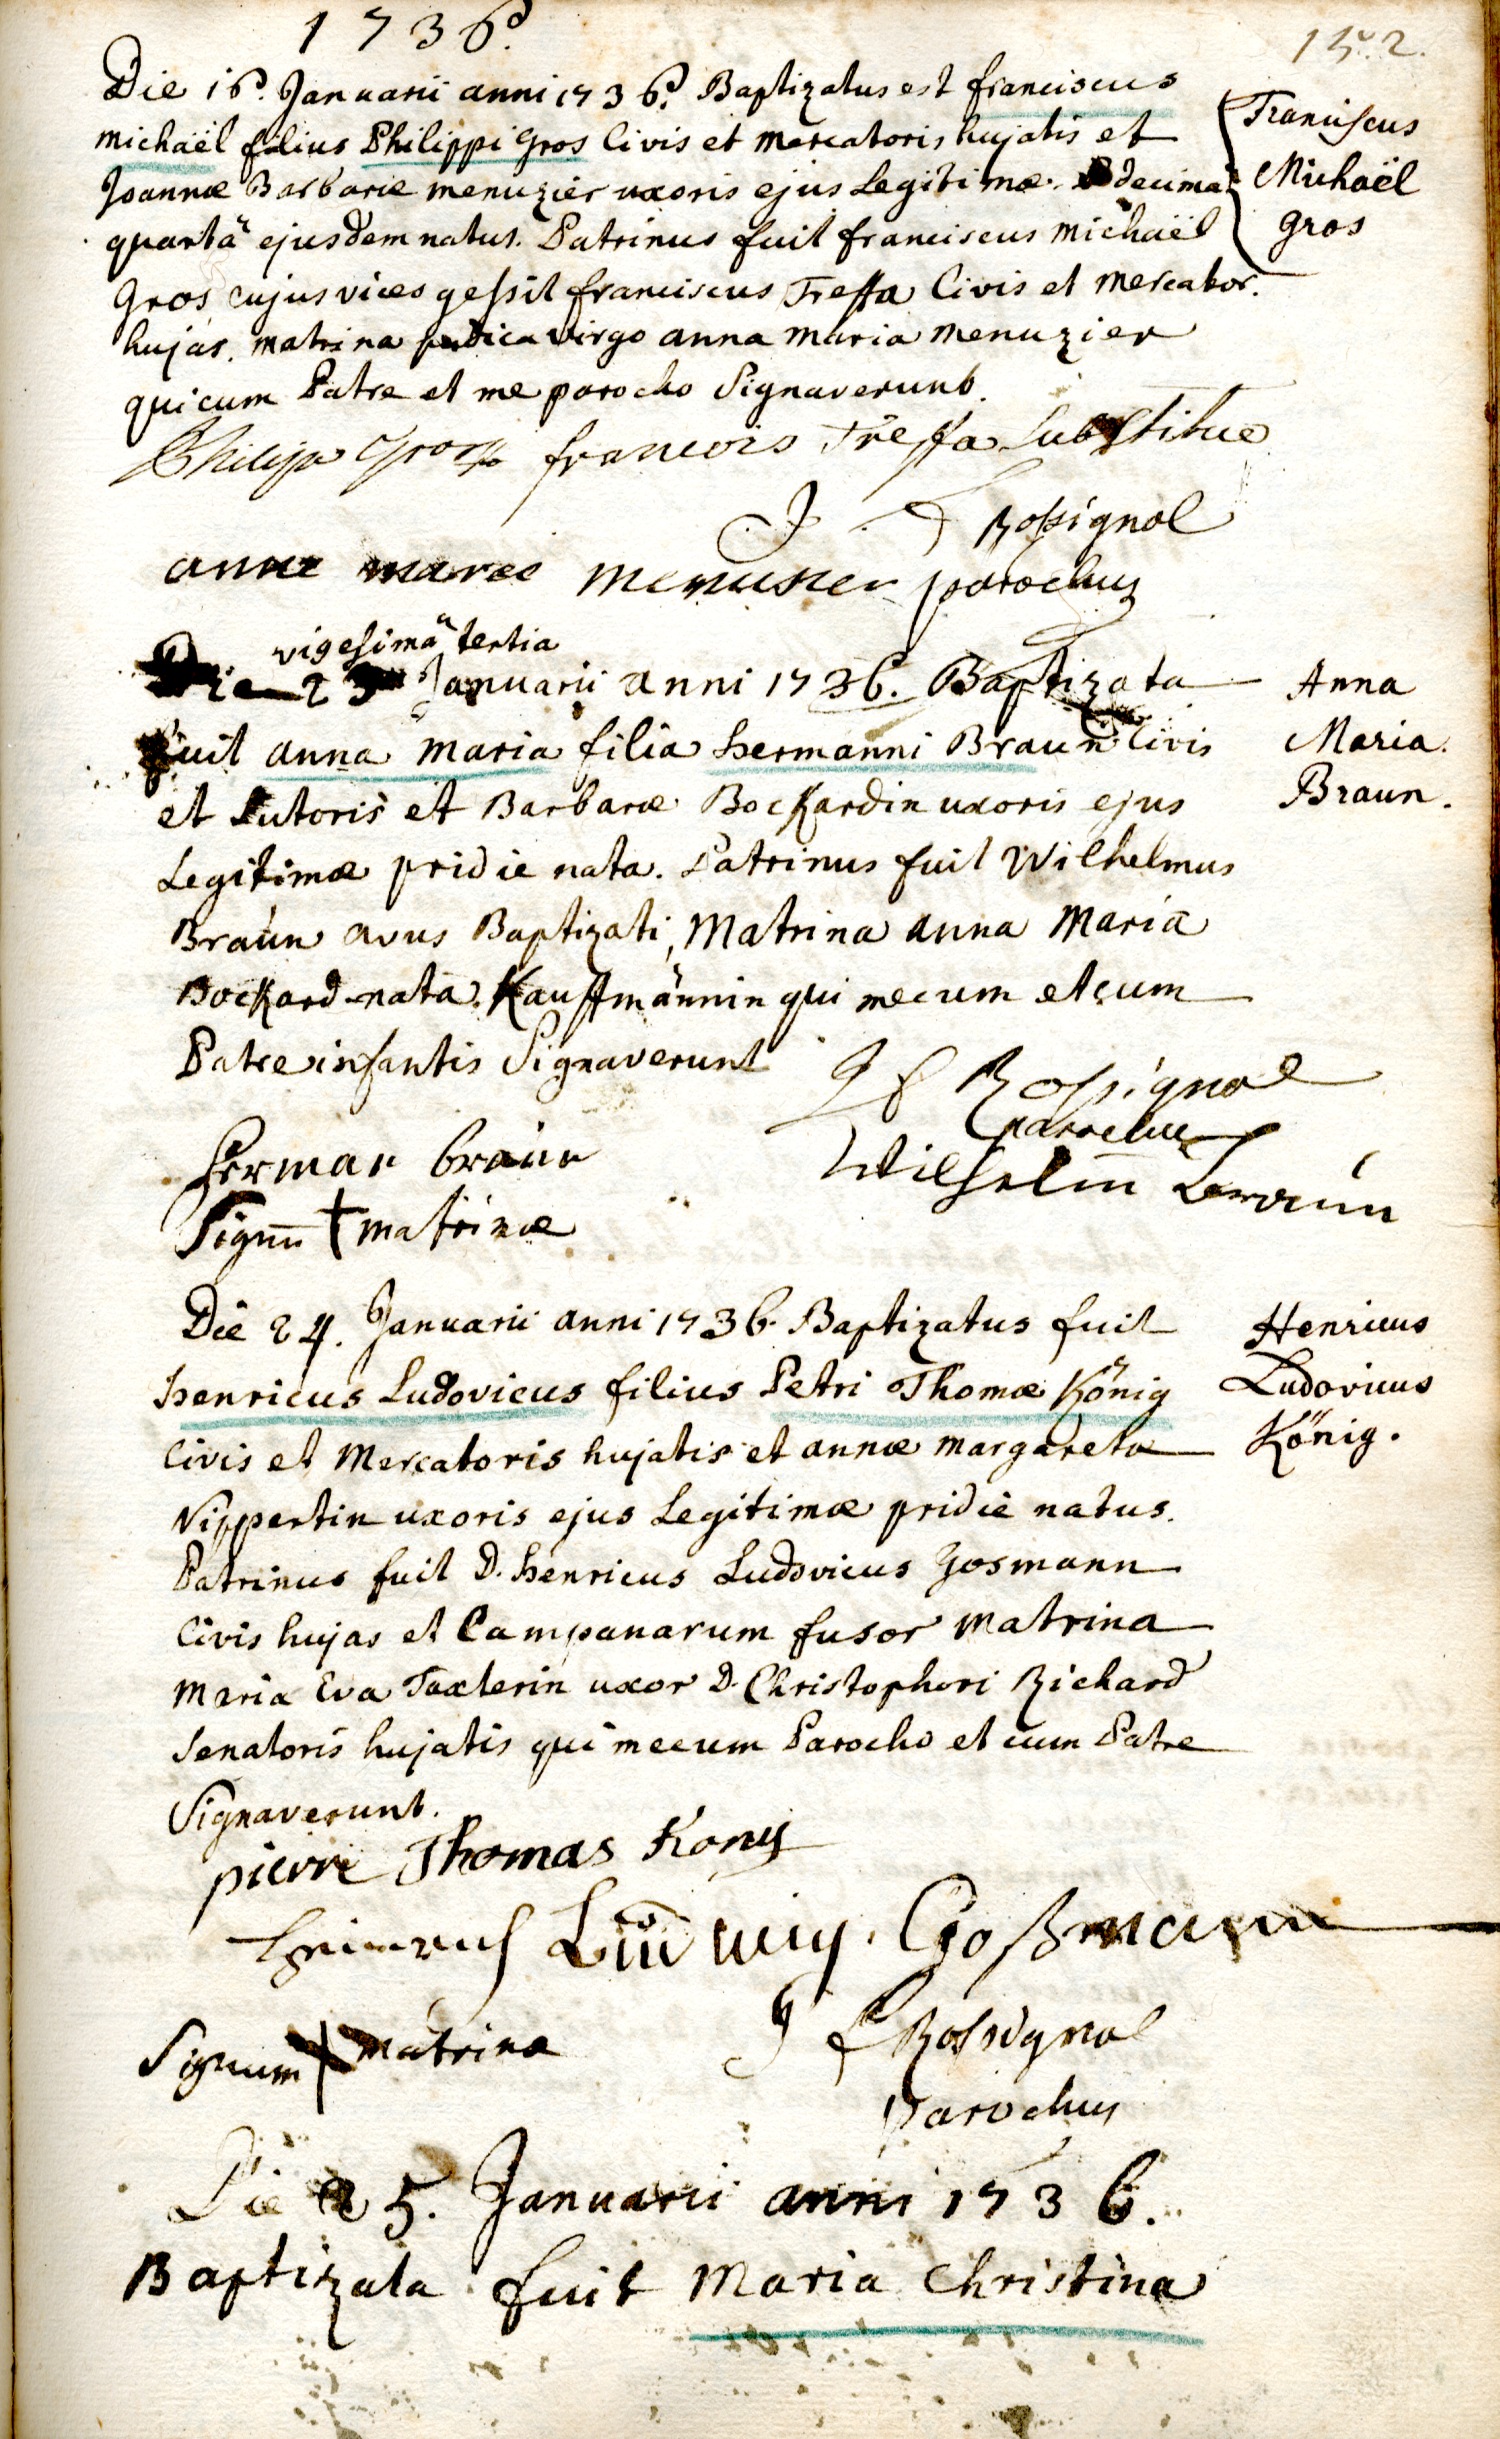 1736.
152.
Die 16. Januarii anni 1736. Baptizatus est franciscus
michaël filius Philippi Gros Civis et mercatoris hujatis et
Joannæ Barbaræ menuzier uxoris ejus Legitimæ. decimâ
quartâ ejusdem natus. Patrinus fuit franciscus michaël
Gros, cujus vices gessit franciscus Treffa Civis et mercator
hujas, matrina pudica virgo anna maria menuzier
qui cum Patre et me parocho Signaverunt.
Franciscus
Michaël
Gros
Philipp Gross francois Treffa Substitue
J Rossignol
anne marie menusier parochus
vigesimâ tertia
Die 23 Januarii anni 1736. Baptizata
fuit anna maria filia hermanni Braun Civis
et Sutoris et Barbaræ Bockardin uxoris ejus
Legitimæ pridie nata. Patrinus fuit Wilhelmus
Braun avus Baptizati, Matrina anna Maria
Bockard nata Kauffmännin qui mecum et cum
Patre infantis Signaverunt
Anna
Maria.
Braun.
J f Rossignol
parochus
Herman braun
Wilhelm Braun
Signu matrinæ
Die 24. Januarii anni 1736. Baptizatus fuit
henricus Ludovicus filius Petri Thomæ König
Civis et Mercatoris hujatis et annæ margaretæ
Nippertin uxoris ejus Legitimæ pridie natus.
Patrinus fuit D. henricus Ludovicus Gosmann
Civis hujas et Campanarum fusor matrina
maria Eva Taxlerin uxor D. Christophori Richard
Senatoris hujatis qui mecum Parocho et cum Patre
Signaverunt.
Henricus
Ludovicus
König.
pierre Thomas Konig
Heinrich Ludwig Goßmann
J f Rossignol
Signum matrinæ
Parochus
Die 25. Januarii anni 1736.
Baptizata fuit Maria Christina